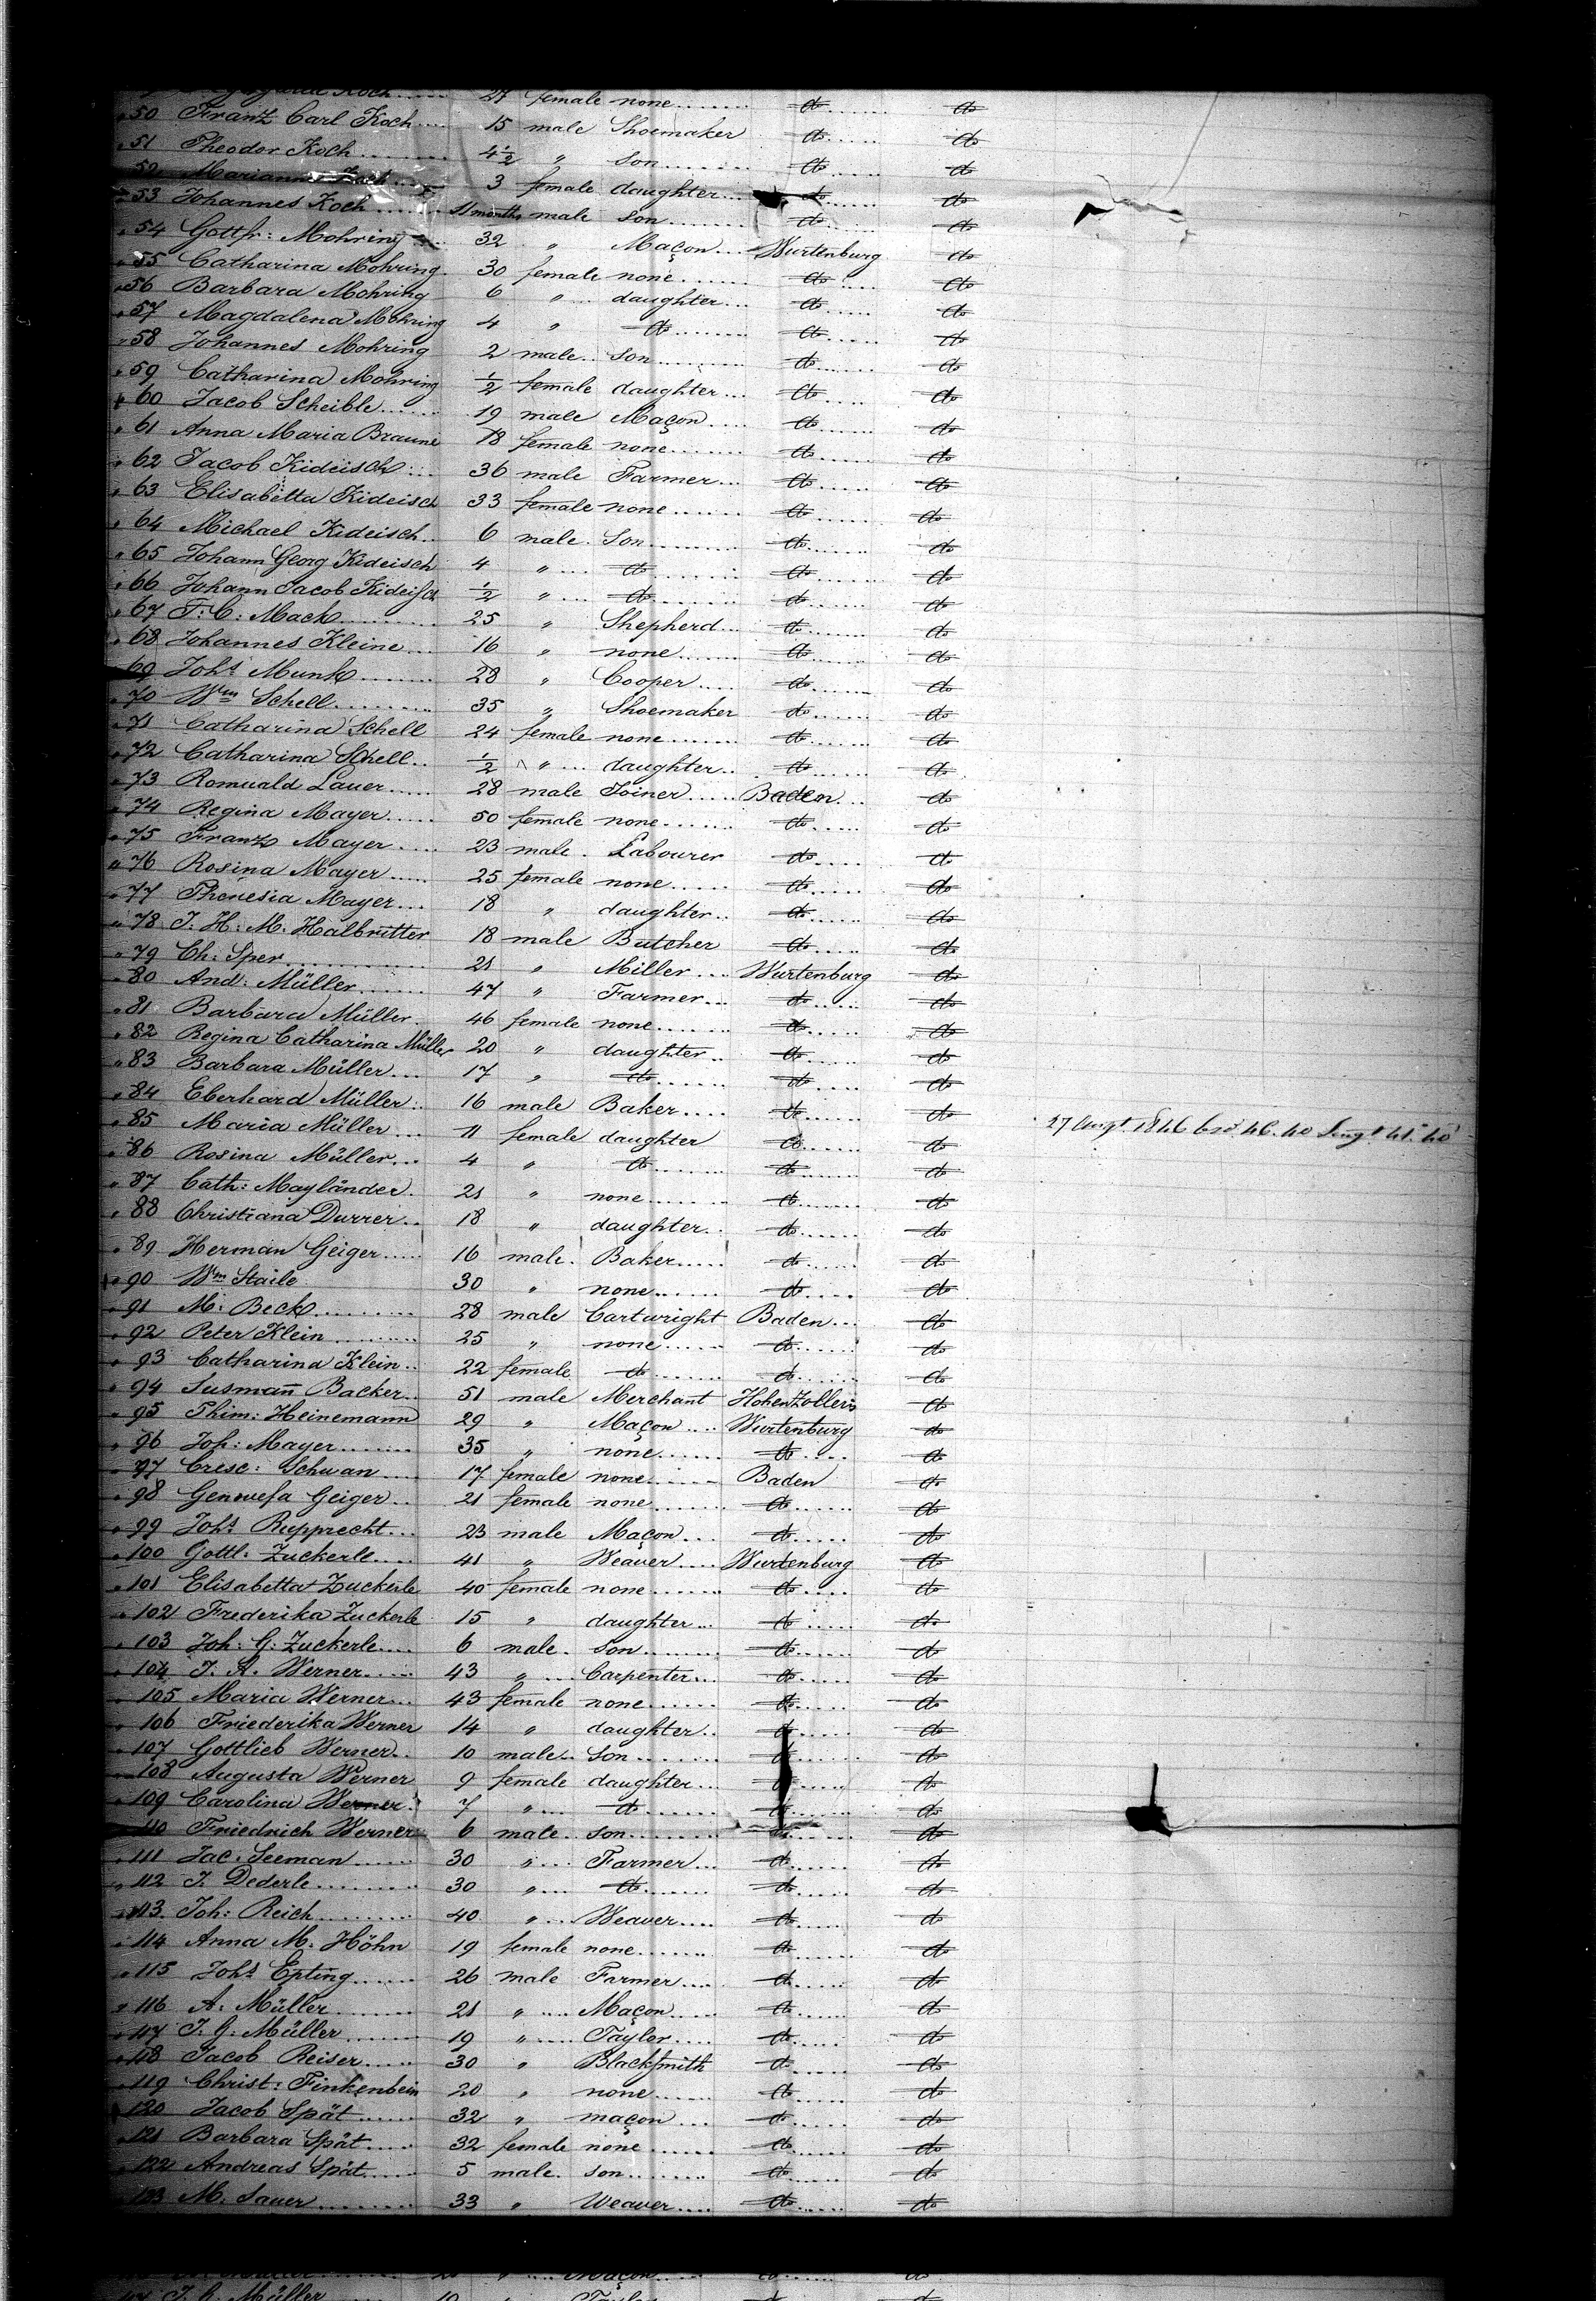 Koch 27 female none do do
50 Franz Carl Koch 15 male Shoemaker do do
51 Theodor Koch 4½ " son do do
52 Marianne Koch 3 female daughter do do
53 Johannes Koch 11 months male son do do
54 Gottfr: Mohring 32 " Maçon Wurtenburg do
55 Catharina Mohring 30 female none do do
56 Barbara Mohring 6 " daughter do do
57 Magdalena Mohring 4 " do do do
58 Johannes Mohring 2 male son do do
59 Catharina Mohring ½ female daughter do do
60 Jacob Scheible 19 male Maçon do do
61 Anna Maria Braune 18 female none do do
62 Jacob Kideisch 36 male Farmer do do
63 Elisabetta Kideisch 33 female none do do
64 Michael Kideisch 6 male Son do do
65 Johann Georg Kideisch 4 " do do do
66 Johann Jacob Kideisch ½ " do do do
67 T: C: Mack 25 " Shepherd do do
68 Johannes Kleine 16 " none do do
69 Johs Munk 28 " Cooper do do
70 Wm Schell 35 " Shoemaker do do
71 Catharina Schell 24 female none do do
72 Catharina Schell ½ " daughter do do
73 Romuald Lauer 28 male Joiner Baden do
74 Regina Mayer 50 female none do do
75 Franz Mayer 23 male Labourer do do
76 Rosina Mayer 25 female none do do
77 Theresia Mayer 18 " daughter do do
78 J: H: M: Halbritter 18 male Butcher do do
79 Ch: Sper 21 " Miller Wurtenburg do
80 And: Müller 47 " Farmer do do
81 Barbara Müller 46 female none do do
82 Regina Catharina Müller 20 " daughter do do
83 Barbara Müller 17 " do do do
84 Eberhard Müller 16 male Baker do do
85 Maria Müller 11 female daughter do do 27 Augt. 1846
86 Rosina Müller 4 " do do do
87 Cath: Mayländer 21 " none do do
88 Christiana Durrer 18 " daughter do do
89 Herman Geiger 16 male Baker do do
90 Wm Staile 30 " none do do
91 M: Beck 28 male Cartwright Baden do
92 Peter Klein 25 " none do do
93 Catharina Klein 22 female do do do
94 Susmañ Backer 51 male Merchant HohenZollern do
95 Thim: Heinemann 29 " Maçon Wurtenburg do
96 Joh: Mayer 35 " none do do
97 Cresc: Schwan 17 female none Baden do
98 Genovefa Geiger 21 female none do do
99 Johs Rupprecht 23 male Maçon do do
100 Gottl: Zuckerle 41 " Weaver Wurtenburg do
101 Elisabetta Zuckerle 40 female none do do
102 Frederika Zuckerle 15 " daughter do do
103 Joh: G: Zuckerle 6 male son do do
104 J. A. Werner 43 " Carpenter do do
105 Maria Werner 43 female none do do
106 Friederika Werner 14 " daughter do do
107 Gottlieb Werner 10 male son do do
108 Augusta Werner 9 female daughter do do
109 Carolina Werner 7 " do do do
110 Friedrich Werner 6 male son do do
111 Jac: Seeman 30 " Farmer do do
112 J. Dederle 30 " do do do
113 Joh: Reich 40 " Weaver do do
114 Anna M. Höhn 19 female none do do
115 Johs Epting 26 male Farmer do do
116 A: Müller 21 " Maçon do do
117 J. G: Müller 19 " Taylor do do
118 Jacob Reiser 30 " Blacksmith do do
119 Christ: Finkenbein 20 " none do do
120 Jacob Spät 32 " maçon do do
121 Barbara Spät 32 female none do do
122 Andreas Spät 5 male son do do
123 M. Sauer 33 " Weaver do do
Maçon do do
Müller 19 Taylor